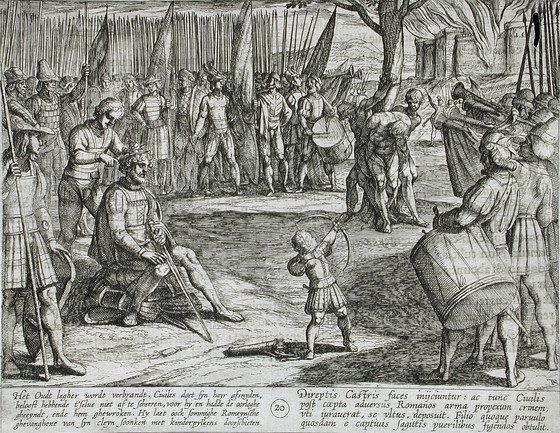 Het Oudt legher wordt verbrandt. Ciuilis doet syn hayr afsnyden,
belooft hebbende t'selue niet af te scheeren, voor hy en hadde de oorloghe
gheeyndt, ende hem ghewroken. Hy laet oock sommighe Romeynsche
ghevanghene van syn cleyn soonken met kinderpylkens doorschieten.
20
Direptis Castris faces iniiciuntur: ac tunc Ciuilis
post cæpta aduersus Romanos arma propexum crinem
vti iurauerat, se vltus, deposuit. Filio quoque paruulo
quosdam e captiuis sagittis puerilibus figendos obtulit.